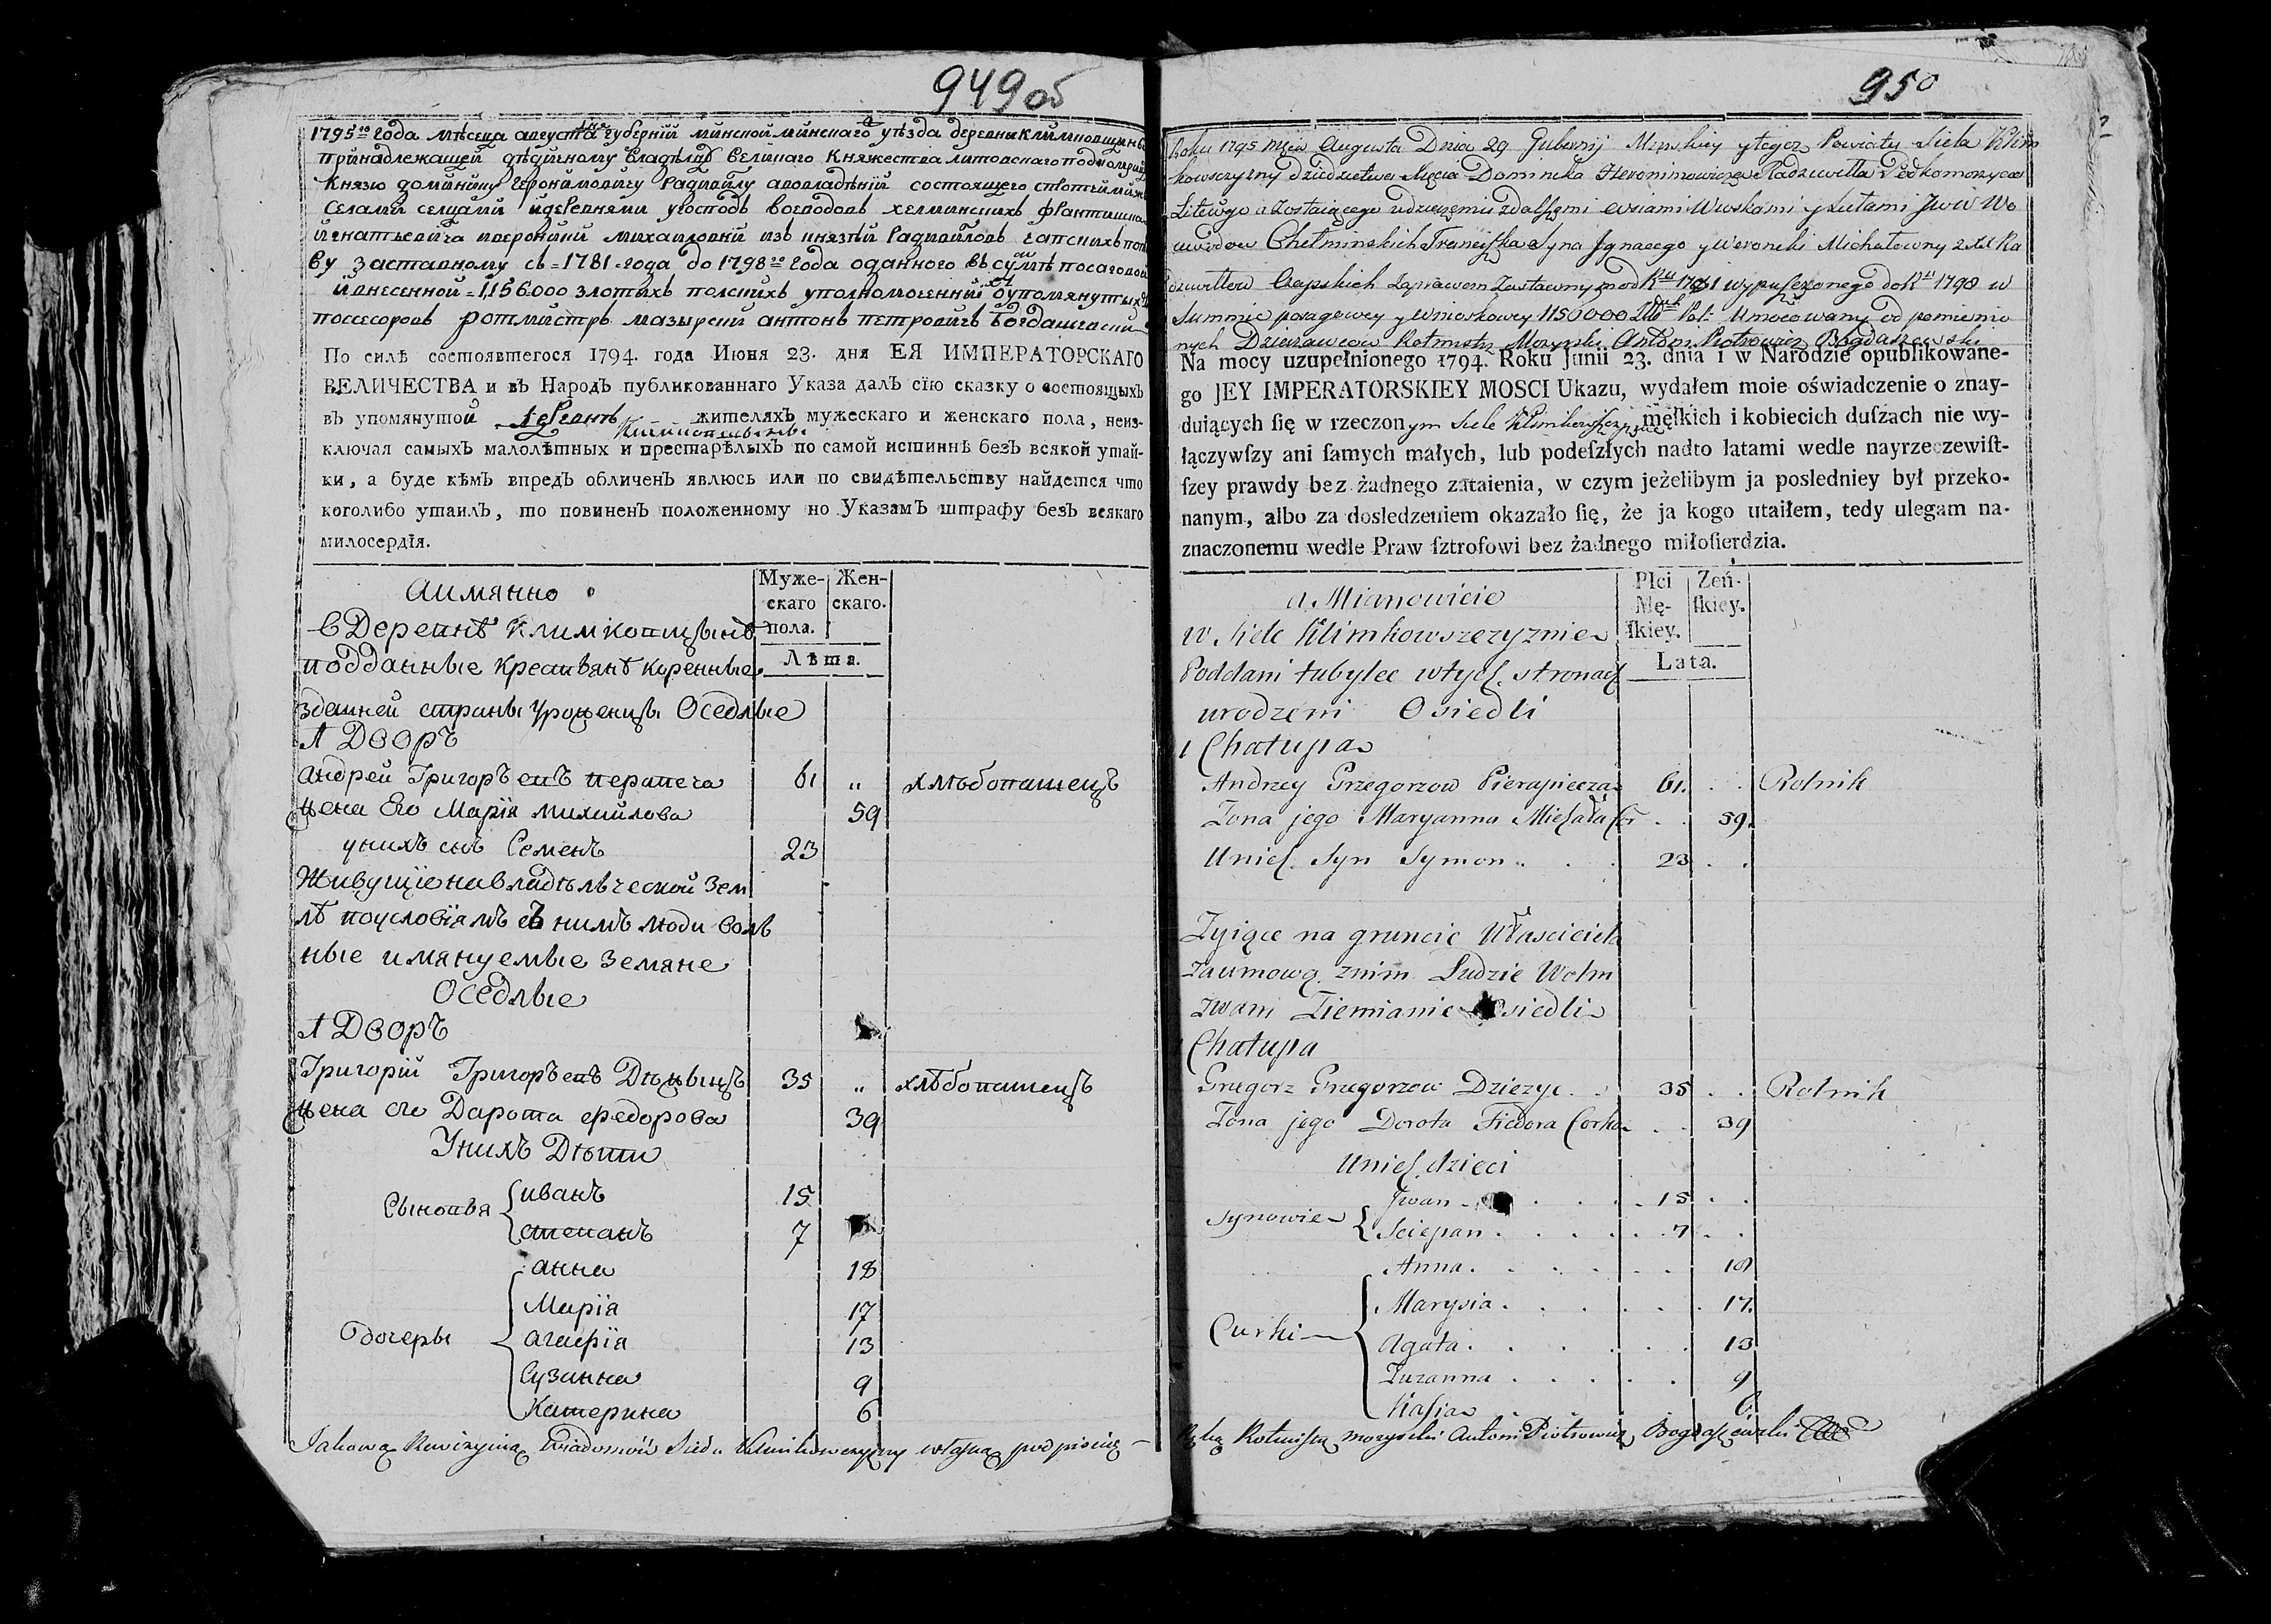 949 об
1795 го года мѣсяца августа губерній минской минскаго уѣзда деревни Климковщины
принадлежащей дѣдичному владѣлцу великаго княжества литовскаго подкоморию
Князю доминику Геронимовичу Радивилу
селами селцами и деревнями у господъ воеводовъ хелминскихъ Франтишка
Игнатьевича и вероники михаиловни изъ князей Радивиловъ чапскихъ по
ву заставному съ = 1781 = года до 1798 го года отданного въ сумме посаговой
и внесенной = 1,156000 злотихъ полскихъ уполномоченный отъ упомянутыхъ
поссесоровъ ротмистръ мазырский антонъ петровичъ Богдашевский
По силѣ состоявшегося 1794. года Июня 23. дня ЕЯ ИМПЕРАТОРСКАГО
ВЕЛИЧЕСТВА и въ Народъ публикованнаго Указа далъ сїю сказку о состоящыхъ
въ упомянутой деревнѣ Климковщизнѣ жителяхъ мужескаго и женскаго пола, неиз-
ключая самыхъ малолѣтныхъ и престарѣлыхъ по самой истиннѣ безъ всякой утай-
ки, а буде кѣмъ впредь обличенъ явлюсь или по свидѣтельству найдется что
коголибо утаилъ, то повиненъ положенному по Указамъ штрафу безъ всякаго
милосердїя.
Муже-скаго пола. Жен-скаго.
Лѣта.
Аимянно
в Деревнѣ Климковщызнѣ
подданные крестьянѣ коренные
здешней страны уроженцы Оседлые
1 Дворъ
Андрей Григоръевъ перапеча 61 „ хлѣбопашецъ
жена Его Марїя михайлова 59
у нихъ сынъ Семенъ 23
Живущїе на владѣльческой зем
лѣ по условїямъ съ нимъ люди воль
ные имянуемые земяне
Оседлые
1 Дворъ
Григорїй Григоръевъ 35 „ хлѣбопашецъ
жена его Дарота федорова 39
У нихъ Дѣти
Сыновья
иванъ 15
степанъ 7
дочеры
анна 18
Марїя 17
агафїя 13
Сузанна 9
Катерина 6
Takową Rewizyiną Wiadomość Sieła Klimkowszczyzny własną podpisuię
950
Roku 1795 Mca Augusta Dnia 29 Gubernij Minskiey y tegoż Powiatu Sieła Klim
kowszczyzny dziedzictwa Xięcia Dominika Hieronimowicza Radziwiłła Podkomorzyca
Litewgo a zostaiącego w dzierżeniu z dalszemi wsiami Wioskami y Sielcami JWW Wo
iewodow Chełminskich Franciszka Syna Ignacego y Weroniki Michałowny z XX Ra
dziwiłłow Czapskich za prawem Zastawnym od Rku 1781 wypuszczonego do Rku 1798 w
Summie posagowey y wnioskowey 1156000 Złłt Pol: Umocowany od pomienio
nych Dzierżawcow Rotmistrz Mozyrski Antoni Piotrowicz Bogdaszewski
Na mocy uzupełnionego 1794. Roku Junii 23. dnia i w Narodzie opublikowane-
go JEY IMPERATORSKIEY MOSCI Ukazu, wydałem moie oświadczenie o znay-
duiących ſię w rzeczonym Siele Klimkowszczyznie męſkich i kobiecich duſzach nie wy-
łączywſzy ani ſamych małych, lub podeſzłych nadto latami wedle nayrzeczewiſt-
ſzey prawdy bez żadnego zataienia, w czym jeżelibym ja posledniey był przeko-
nanym, albo za dosledzeniem okazało ſię, że ja kogo utaiłem, tedy ulegam na-
znaczonemu wedle Praw ſztrofowi bez żadnego miłoſierdzia.
Płci Mę-ſkiey. Zeń-ſkiey.
Lata.
a Mianowicie
w Siele Klimkowszczyznie
Poddani tubylce w tych stronach
urodzeni Osiedli
1 Chałupa
Andrzey Grzegorzow Pierapiecza 61. Rolnik
Zona jego Maryanna Michała Cor 59.
U nich Syn Symon 23
Zyiące na gruncie Własciciela
za umową z nim Ludzie Wolni
zwani Ziemianie Osiedli
1 Chałupa
Grzegorz Grzegorzow Dzieżyc 35 Rolnik
Zona jego Dorota Fiedora Corka 39
U nich dzieci
Synowie
Jwan 15
Sciepan 7
Curki
Anna 18
Marysia 17.
Agata 13
Zuzanna 9
Kasia 6
Ręką Rotmistrz mozyrski Antoni Piotrowicz Bogdaszewski